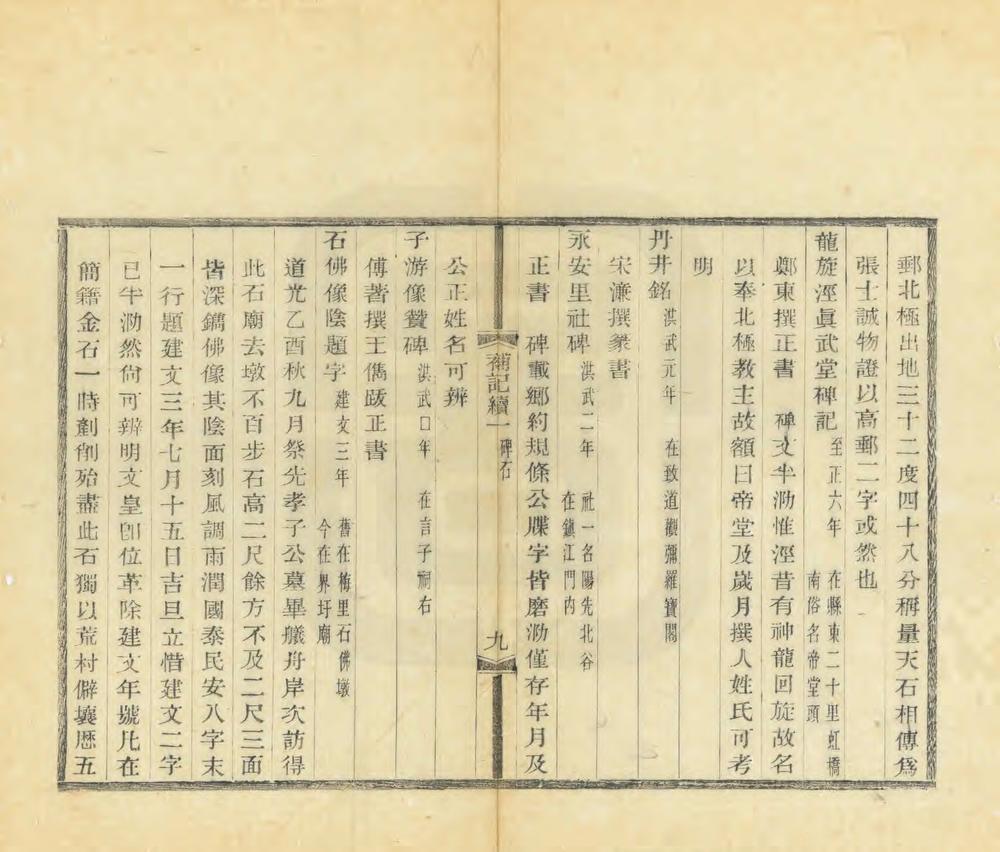 郵北極出地三十二度四十八分稱量天石相傳爲
張士誠物證以高郵二字或然也
龍旋涇眞武堂碑記 至正六年 在縣東二十里虹橋
南俗名帝堂頭
鄭東撰正書 碑文半泐惟涇昔有神龍回旋故名
以奉北極教主故額曰帝堂及歲月撰人姓氏可考
明
丹井銘 洪武元年 在致道觀彌羅寶閣
宋濂撰篆書
永安里社碑 洪武二年 社一名陽先北谷
在鎭江門內
正書 碑載鄉約規條公牒字皆磨泐僅存年月及
補記續一 碑石 九
公正姓名可辨
子游像贊碑 洪武口年 在言子祠右
傅著撰王儁跋正書
石佛像陰題字 建文三年 舊在梅里石佛墩
今在界圩廟
道光乙酉秋九月祭先孝子公墓畢艤舟岸次訪得
此石廟去墩不百步石高二尺餘方不及二尺三面
皆深鐫佛像其陰面刻風調雨潤國泰民安八字末
一行題建文三年七月十五日吉旦立惜建文二字
已半泐然尙可辨明文皇卽位革除建文年號凡在
簡籍金石一時剷削殆盡此石獨以荒村僻壤歷五